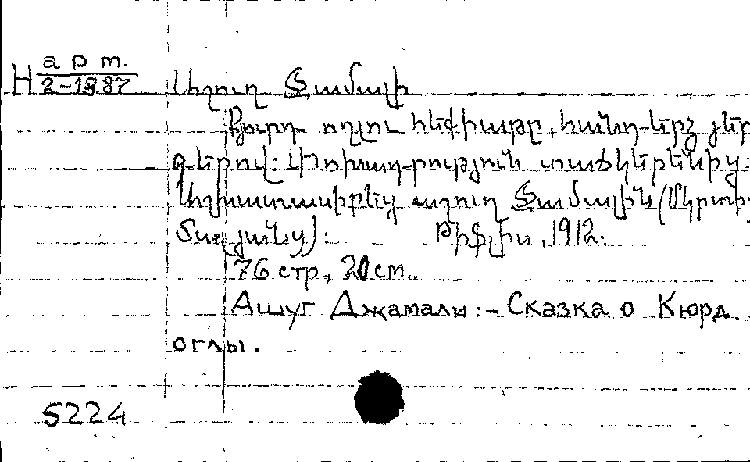 H арт.
2-1887
Աշուղ Ջամալի
Քյուրդ օղլու հեքիաթը, հանդերձ յեր
գերով: Փոխադրություն տաճկերենից:
Աշխատասիրեց աշուղ Ջամալին (Մկրտիչ
Տալյանց): Թիֆլիս, 1912.
76 стр., 20 cm.
Ашуг Джамалы: - Сказка о Кюрд.
оглы.
5224